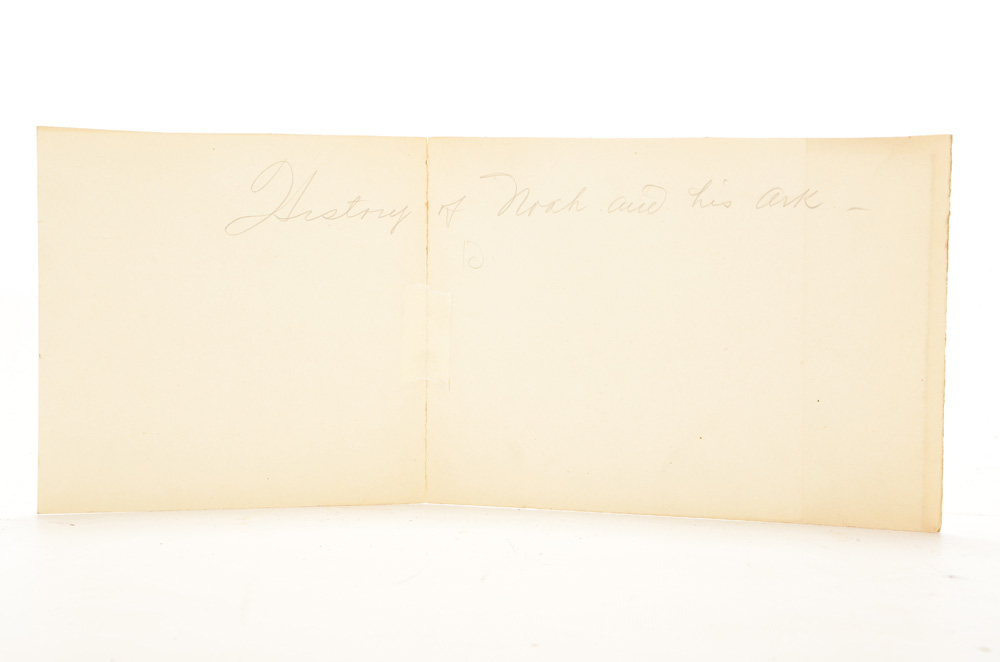 History of Noah and his Ark –